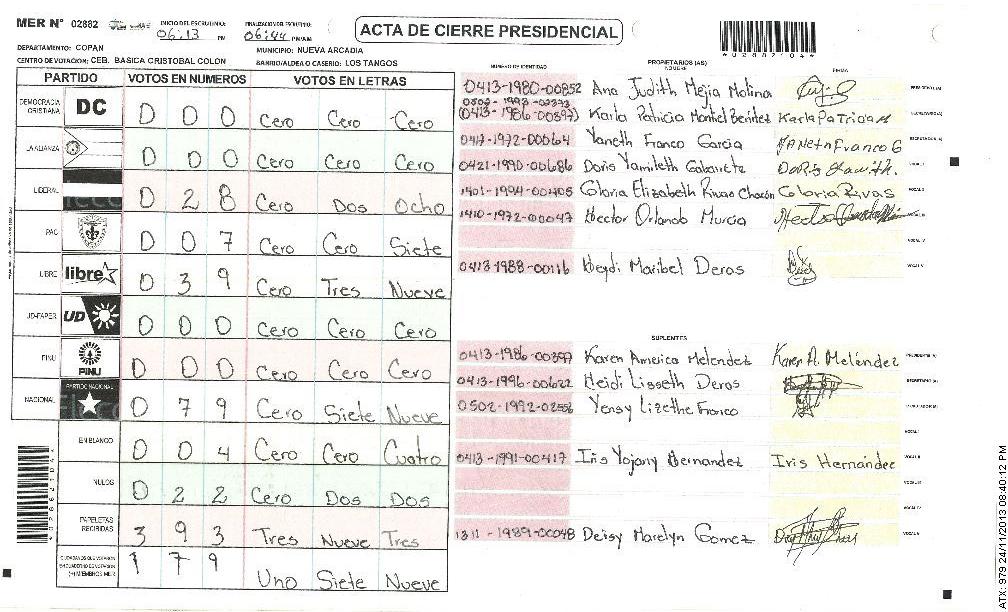 MER N° 02882 INICIO DEL ESCRUTINIO: 06:13 PM FINALIZACION DEL ESCRUTINIO: 06:44 PM/AM
ACTA DE CIERRE PRESIDENCIAL
DEPARTAMENTO: COPAN MUNICIPIO: NUEVA ARCADIA
CENTRO DE VOTACION: CEB. BASICA CRISTOBAL COLON BARRIO/ALDEA O CASERIO: LOS TANGOS
PARTIDO VOTOS EN NUMEROS VOTOS EN LETRAS
DEMOCRACIA CRISTIANA DC 0 0 0 Cero Cero Cero
LA ALIANZA 0 0 0 Cero Cero Cero
LIBERAL 0 2 8 Cero Dos Ocho
PAC 0 0 7 Cero Cero Siete
LIBRE libre 0 3 9 Cero Tres Nueve
UD-FAPER UD 0 0 0 Cero Cero Cero
PINU PINU 0 0 0 Cero Cero Cero
NACIONAL PARTIDO NACIONAL 0 7 9 Cero Siete Nueve
EN BLANCO 0 0 4 Cero Cero Cuatro
NULOS 0 2 2 Cero Dos Dos
PAPELETAS RECIBIDAS 3 9 3 Tres Nueve Tres
CIUDADANOS QUE VOTARON EN CUADERNO DE VOTACION (+) MIEMBROS MER 1 7 9 Uno Siete Nueve
NUMERO DE IDENTIDAD PROPIETARIOS (AS) NOMBRE FIRMA
0413-1980-00852 Ana Judith Mejia Molina PRESIDENTE (A)
(0413-1986-00397) Karla Patricia Montiel Benitez Karla Patricia M SECRETARIO (A)
0417-1972-00064 Yaneth Franco Garcia Yaneth Franco G ESCRUTADOR (A)
0421-1990-00686 Doris Yamileth Doris VOCAL I
1401-1994-00405 Gloria Elizabeth Rivas Chacón Gloria Rivas VOCAL II
1410-1972-00047 Hector Orlando Murcia Hector VOCAL III
VOCAL IV
0413-1988-00116 Heydi Maribel Deras VOCAL V
SUPLENTES
0413-1986-00397 Karen America Melendez Karen A. Meléndez PRESIDENTE (A)
0413-1996-00622 Heidi Lisseth Deras SECRETARIO (A)
0502-1992-02556 Yensy Lizethe Franco ESCRUTADOR (A)
VOCAL I
0413-1991-00417 Iris Yojany Hernandez Iris Hernández VOCAL II
VOCAL III
VOCAL IV
1311-1989-00048 Deisy Marelyn Gomez VOCAL V
ATX: 979 24/11/2013 08:40:12 PM